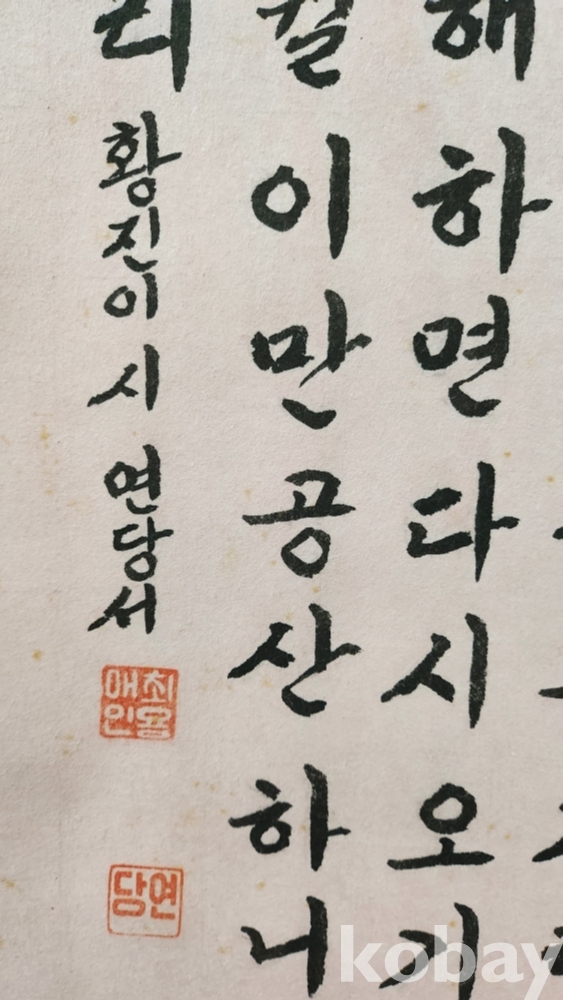 해하면다시오기
월이만공산하니
리
황진이 시 연당서
최용매인
연당
kobay